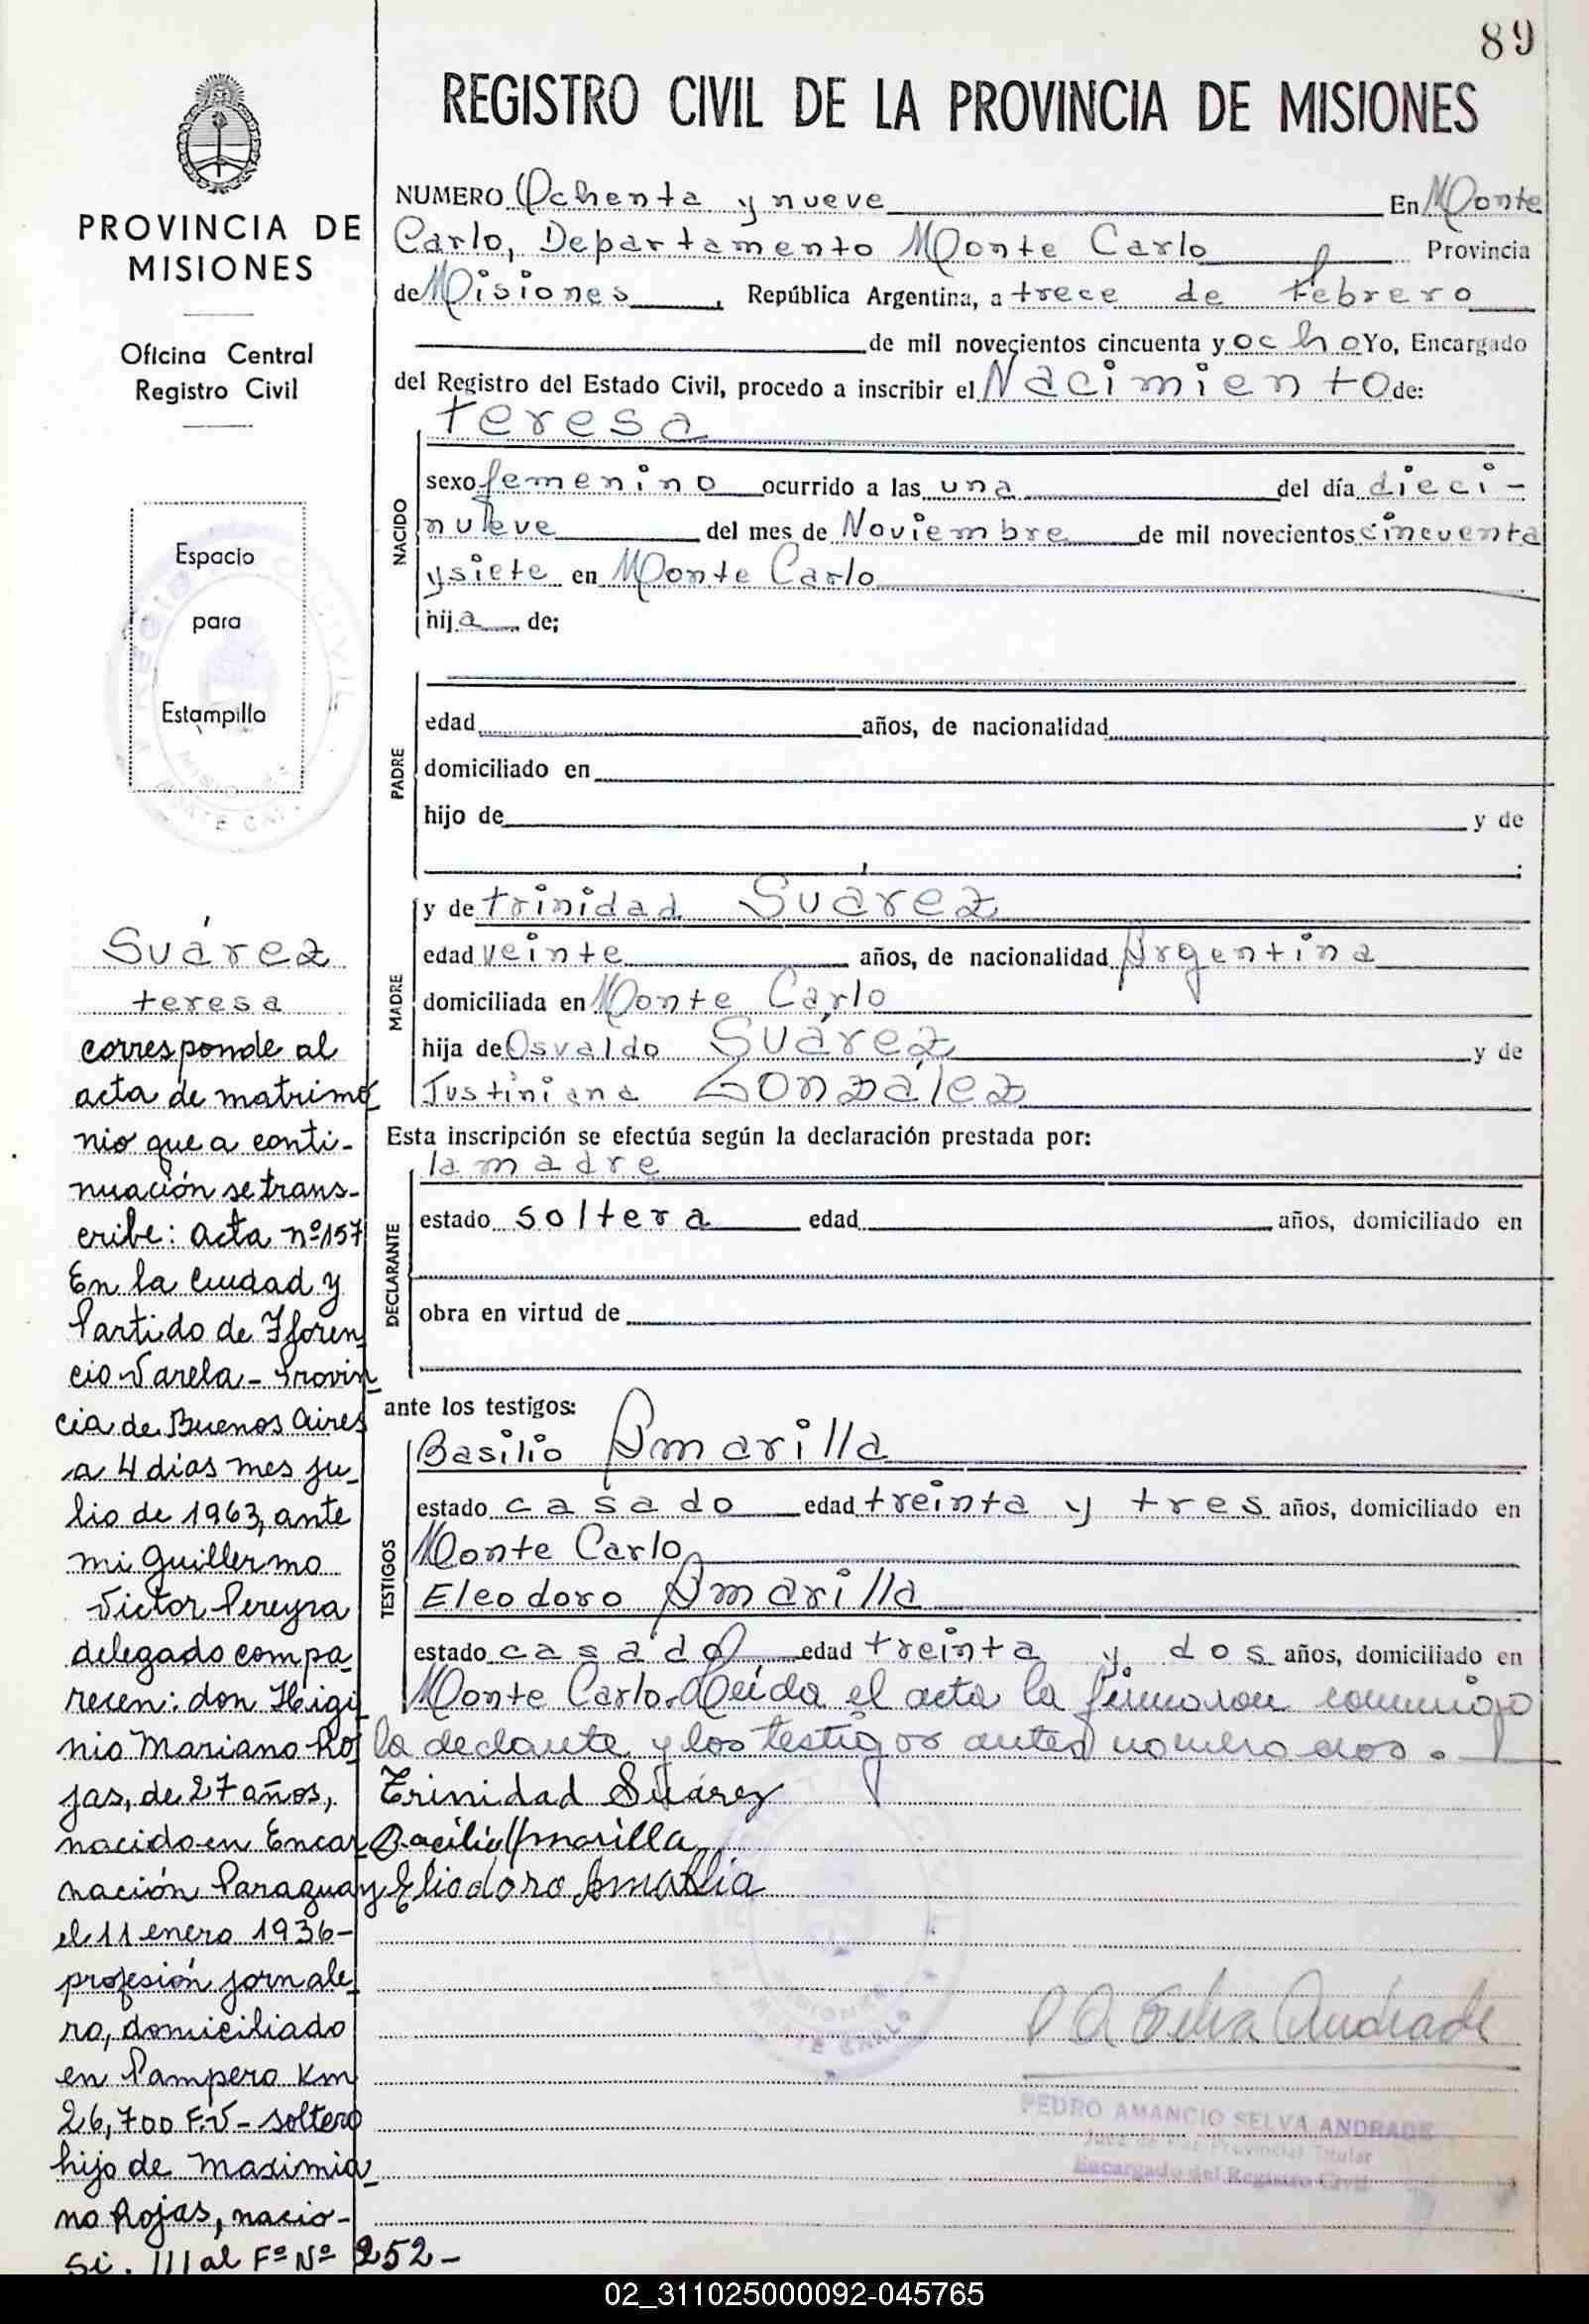 89
REGISTRO CIVIL DE LA PROVINCIA DE MISIONES
PROVINCIA DE
MISIONES
Oficina Central
Registro Civil
Espacio
para
Estampilla
NUMERO Ochenta y nueve En Monte
Carlo, Departamento Monte Carlo Provincia
de Misiones, República Argentina, a trece de febrero
de mil novecientos cincuenta y ocho Yo, Encargado
del Registro del Estado Civil, procedo a inscribir el Nacimiento de:
NACIDO
teresa
sexo femenino ocurrido a las una del día dieci-
nueve del mes de Noviembre de mil novecientos cincuenta
y siete en Monte Carlo
hija de;
PADRE
edad años, de nacionalidad
domiciliado en
hijo de y de
;
MADRE
y de trinidad Suárez
edad veinte años, de nacionalidad Argentina
domiciliada en Monte Carlo
hija de Osvaldo Suárez y de
Justiniana González
Esta inscripción se efectúa según la declaración prestada por:
DECLARANTE
la madre
estado soltera edad años, domiciliado en
obra en virtud de
ante los testigos:
TESTIGOS
Basilio Amarilla
estado casado edad treinta y tres años, domiciliado en
Monte Carlo
Eleodoro Amarilla
estado casado edad treinta y dos años, domiciliado en
Monte Carlo. Leída el acta la firmaron conmigo
la declante y los testigos antes nomerados.
Trinidad Suárez
Bacilio Amarilla
Eliodoro Amarlia
P A Selva Andrade
PEDRO AMANCIO SELVA ANDRADE
Juez de Paz Provincial Titular
Encargado del Registro Civil
Suárez
teresa
corresponde al
acta de matrimo
nio que a conti-
nuación se trans-
cribe: acta nº 157
En la Ciudad y
Partido de Floren
cio Varela - Provin
cia de Buenos Aires
a 4 dias mes ju-
lio de 1963, ante
mi Guillermo
Victor Pereyra
delegado compa-
recen: don Higi
nio Mariano Ro
jas, de 27 años,
nacido en Encar
nación Paraguay
el 11 enero 1936-
profesión jornale-
ro, domiciliado
en Pampero Km
26,700 F.V - soltero
hijo de Maximia-
no Rojas, nacio-
Si. 111 al Fº Nº 252-
02_311025000092-045765